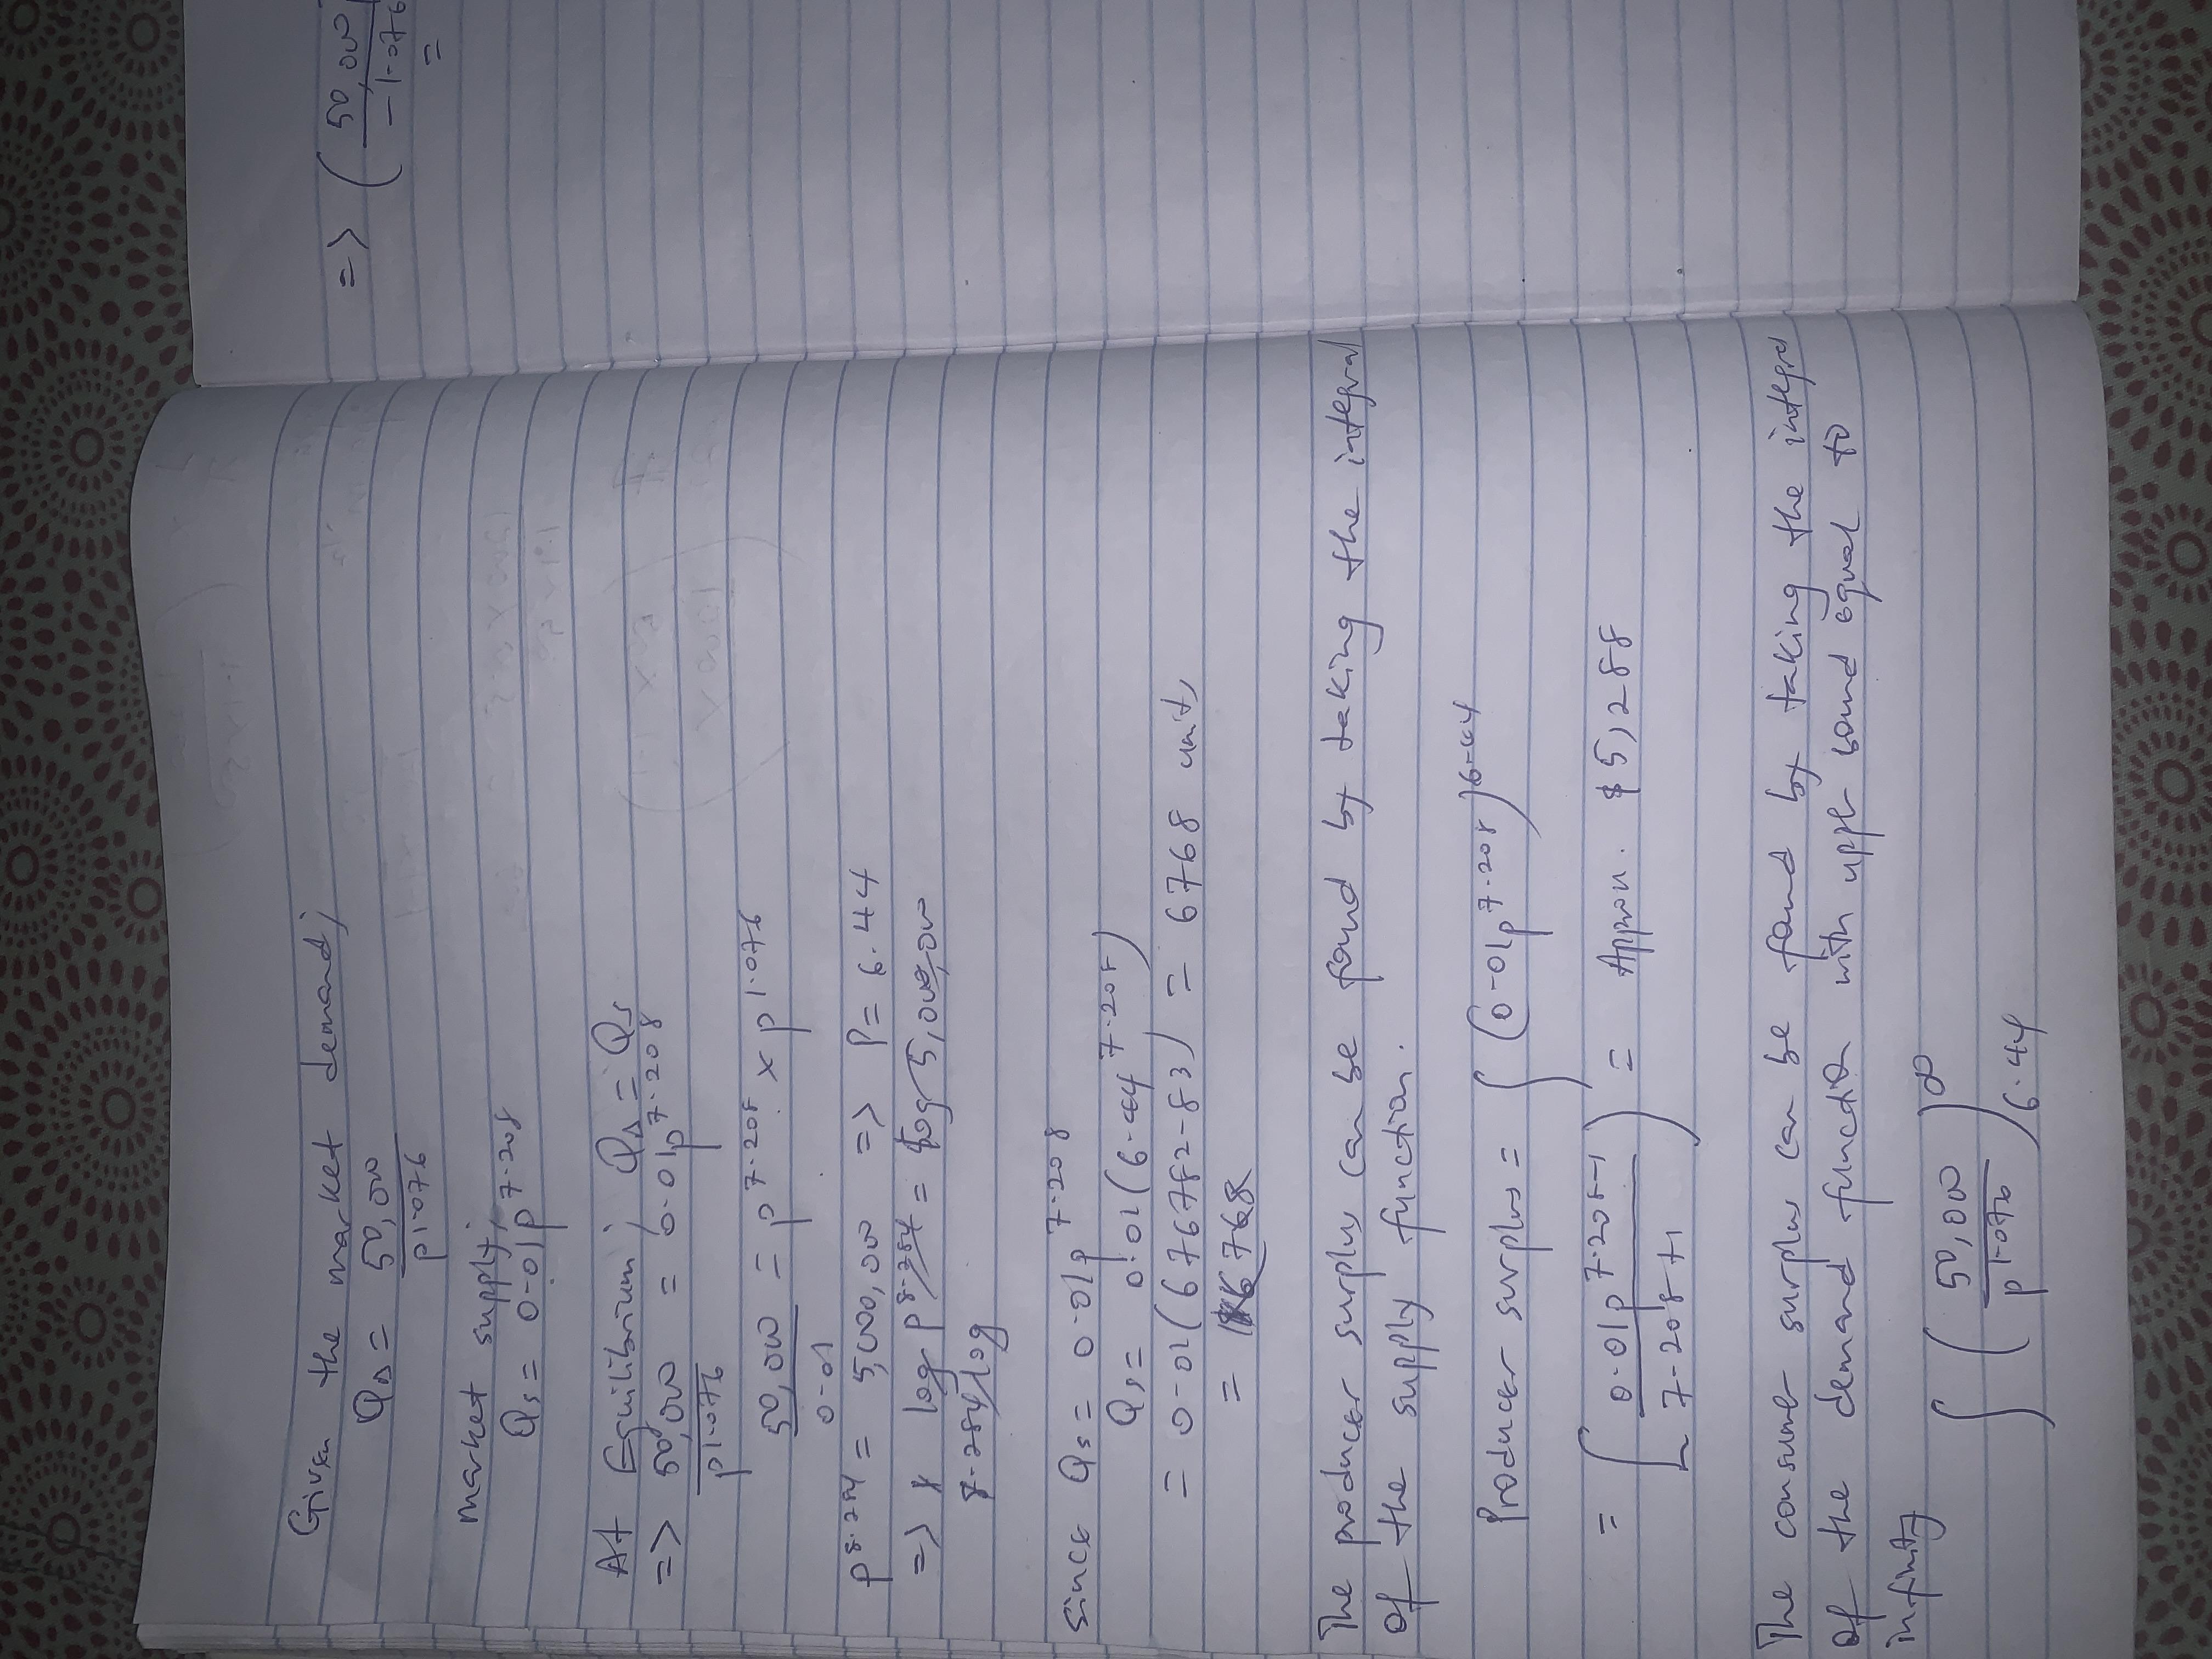 Given the market demand;
QD = 50,000
P^1.076
market supply;
Qs = 0.01P^7.208
At Equilibrium; QD = Qs
=> 50,000 = 0.01P^7.208
P^1.076
50,000 = P^7.208 x P^1.076
0.01
P^8.284 = 5,000,000 => P = 6.44
=> log P^8.284 = log 5,000,000
8.284 log
Since Qs = 0.01P^7.208
Qs = 0.01(6.44^7.208)
= 0.01(676782.83) = 6768 unit,
= 6768
The producer surplus can be found by taking the integral
of the supply function.
Producer surplus = ∫(0.01P^7.208)^6.44
= ∫[0.01P^7.208-1) = Appron. $5,288
7.208+1
The consumer surplus can be found by taking the integral
of the demand function with upper bound equal to
infinity
∫(50,000)^∞
P^1.076 6.44
=> (50,000
-1.076
=